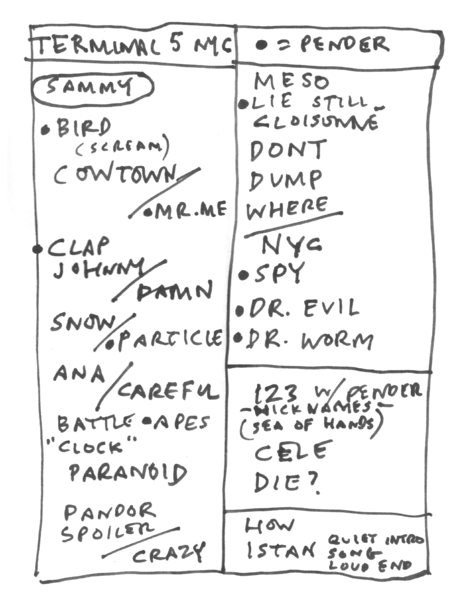 TERMINAL 5 NYC
SAMMY
• BIRD
(SCREAM)
COWTOWN/
• MR. ME
• CLAP
JOHNNY/
DAMN
SNOW/
• PARTICLE
ANA/
CAREFUL
BATTLE • APES
"CLOCK"
PARANOID
PANDOR
SPOILER/
CRAZY
• = PENDER
MESO
• LIE STILL
CLOISONNE
DONT
DUMP
WHERE
NYC
• SPY
• DR. EVIL
• DR. WORM
123 W/ PENDER
- NICKNAMES -
(SEA OF HANDS)
CELE
DIE?
HOW
ISTAN QUIET INTRO
SONG
LOUD END